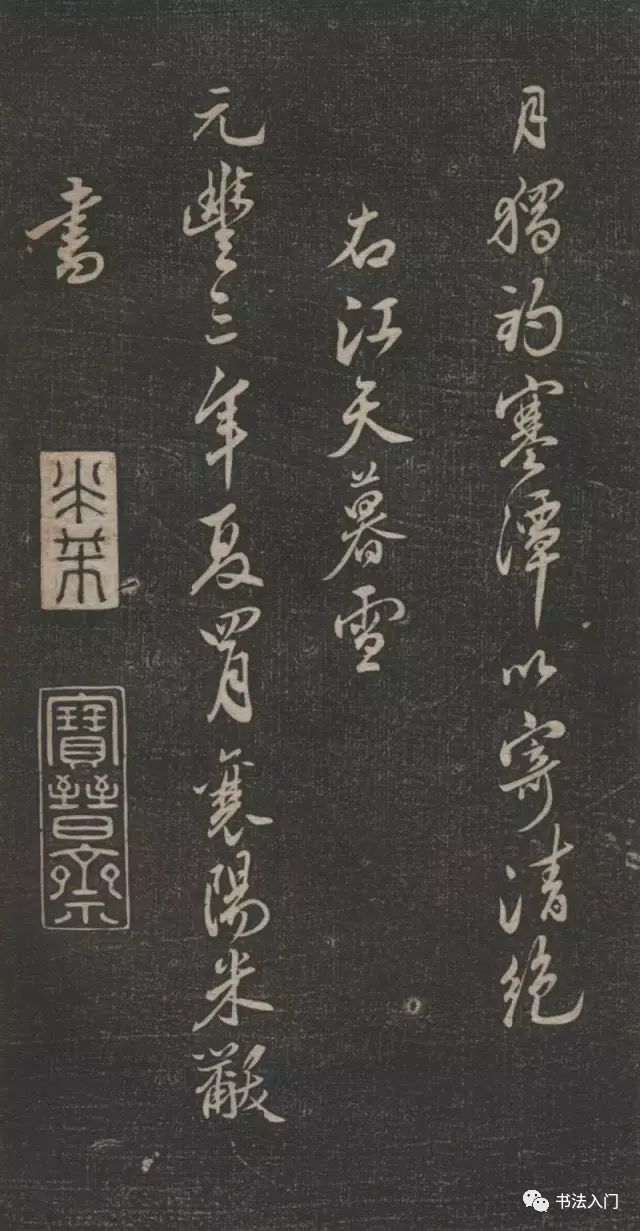 月獨釣寒潭以寄清絕
右江天暮雪
元豐三年夏四月襄陽米黻
書
米芾
寶晉齋
书法入门